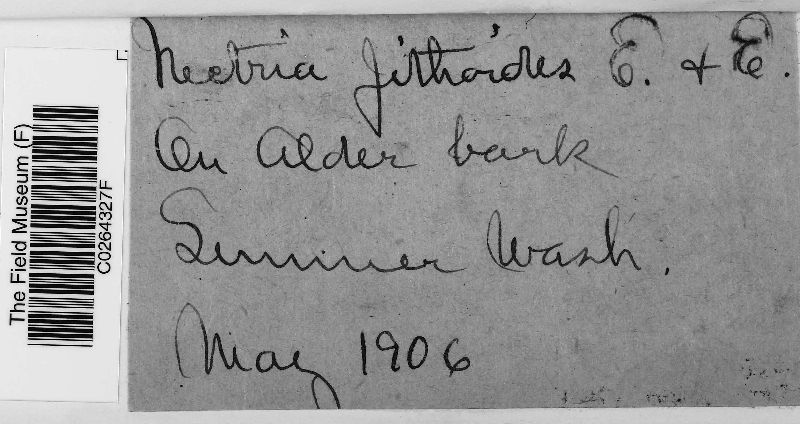 Nectria fithoides E. & E.
On Alder bark
Sumner Wash.
May 1906
The Field Museum (F)
C0264327F